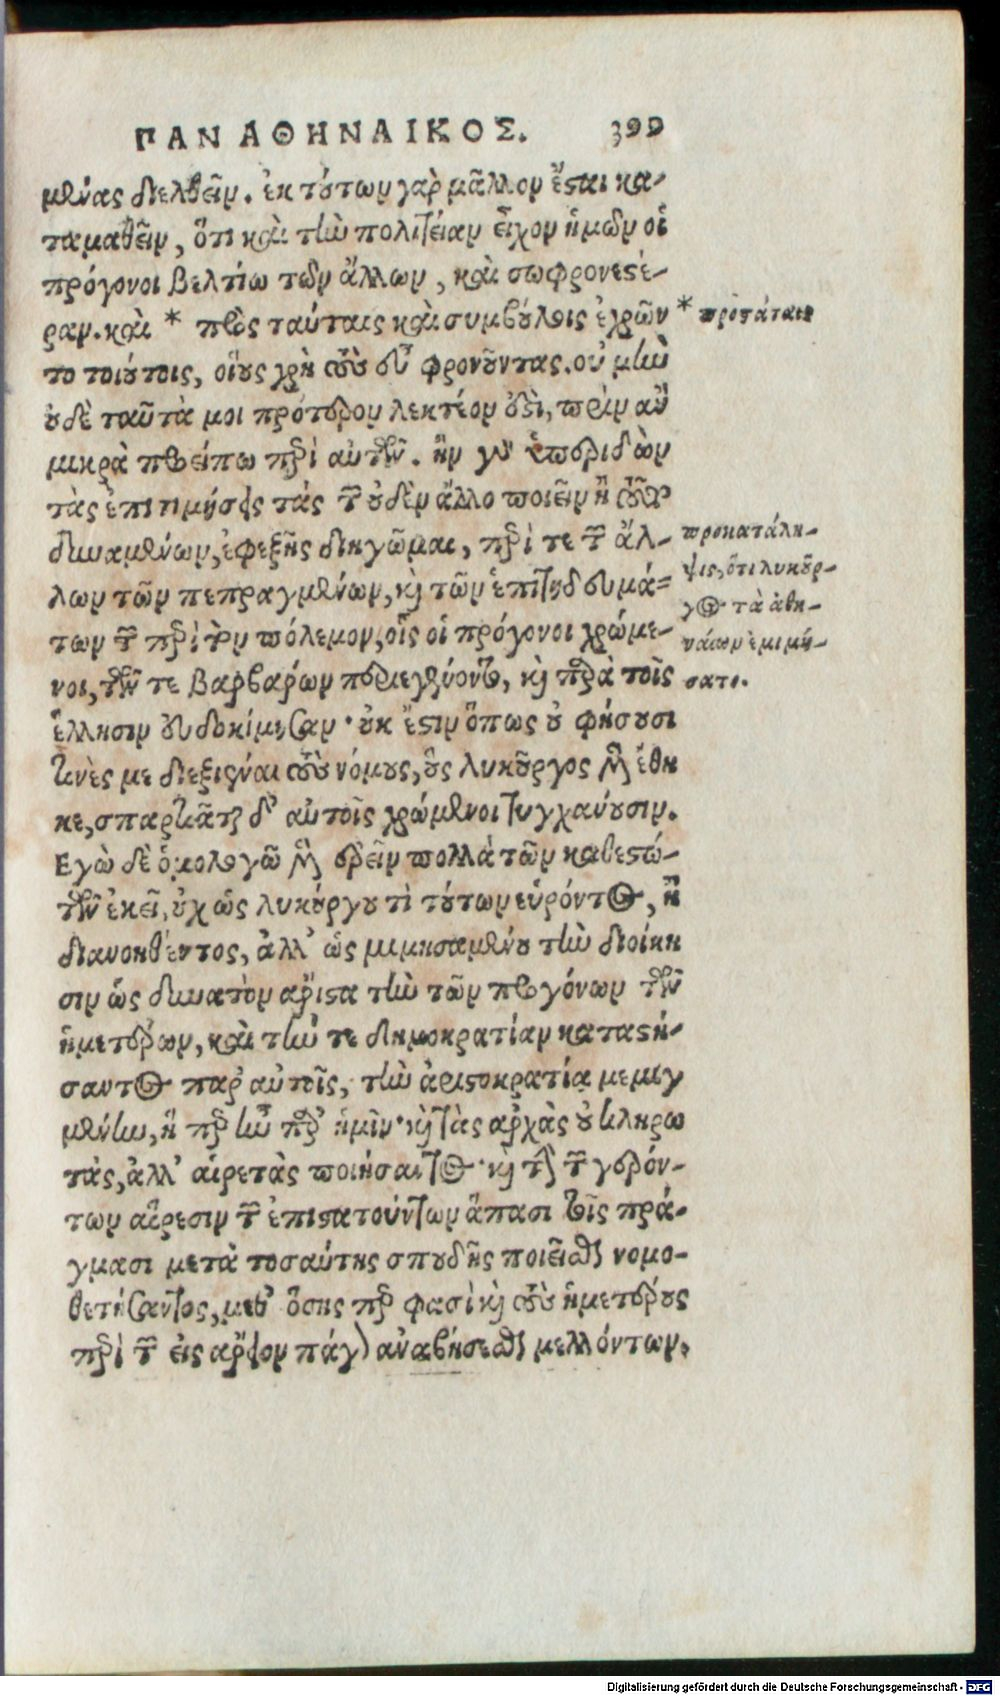 ΠΑΝΑΘΗΝΑΙΚΟΣ. 399
μένας διελθεῖν. ἐκ τούτων γὰρ μᾶλλον ἔσται κα-
ταμαθεῖν, ὅτι καὶ τὴν πολιτείαν εἶχον ἡμῶν οἱ
πρόγονοι βελτίω τῶν ἄλλων, καὶ σωφρονεστέ-
ραν. καὶ * πρὸς ταύταις καὶ συμβούλοις ἐχρῶν * προστάταις
το τοιούτοις, οἵους χρὴ τοὺς εὖ φρονοῦντας. οὐ μὴν
οὐδὲ ταῦτά μοι πρότερον λεκτέον ἐστὶ, πρὶν ἂν
μικρὰ προείπω περὶ αὐτῶν. ἢν γὰρ ὑπεριδὼν
τὰς ἐπιτιμήσεις τὰς τῶν οὐδὲν ἄλλο ποιεῖν ἢ τοῦτο
δυναμένων, ἐφεξῆς διηγῶμαι, περί τε τῶν ἄλ- προκατάλη-
ψις, ὅτι λυκοῦρ-
λων τῶν πεπραγμένων, καὶ τῶν ἐπιτηδευμά- γος τὰ ἀθη-
των τῶν περὶ τὸν πόλεμον, οἷς οἱ πρόγονοι χρώμε- ναίων ἐμιμή-
νοι, τῶν τε βαρβάρων περιεγένοντο, καὶ παρὰ τοῖς σατο.
ἕλλησιν εὐδοκίμησαν· οὐκ ἔστιν ὅπως οὐ φήσουσί
τινές με διεξιέναι τοὺς νόμους, οὓς λυκοῦργος μὲν ἔθη
κε, σπαρτιᾶται δ' αὐτοῖς χρώμενοι τυγχάνουσιν.
Εγὼ δὲ ὁμολογῶ μὲν ἐρεῖν πολλὰ τῶν καθεστώ-
των ἐκεῖ, οὐχ ὡς λυκούργου τὶ τούτων εὑρόντος, ἢ
διανοηθέντος, ἀλλ' ὡς μιμησαμένου τὴν διοίκη
σιν ὡς δυνατὸν ἄριστα τὴν τῶν προγόνων τῶν
ἡμετέρων, καὶ τήν τε δημοκρατίαν καταστή-
σαντος παρ' αὐτοῖς, τὴν ἀριστοκρατίᾳ μεμιγ
μένην, ἥπερ ἦν παρ' ἡμῖν· καὶ τὰς ἀρχὰς οὐ κληρω
τὰς, ἀλλ' αἱρετὰς ποιήσαντος· καὶ τὴν τῶν γερόν-
των αἵρεσιν τῶν ἐπιστατούντων ἅπασι τοῖς πρά-
γμασι μετὰ τοσαύτης σπουδῆς ποιεῖσθαι νομο-
θετήσαντος, μεθ' ὅσης πέρ φασὶ καὶ τοὺς ἡμετέρους
περὶ τῶν εἰς ἄρειον πάγον ἀναβήσεσθαι μελλόντων.
Digitalisierung gefördert durch die Deutsche Forschungsgemeinschaft - DFG